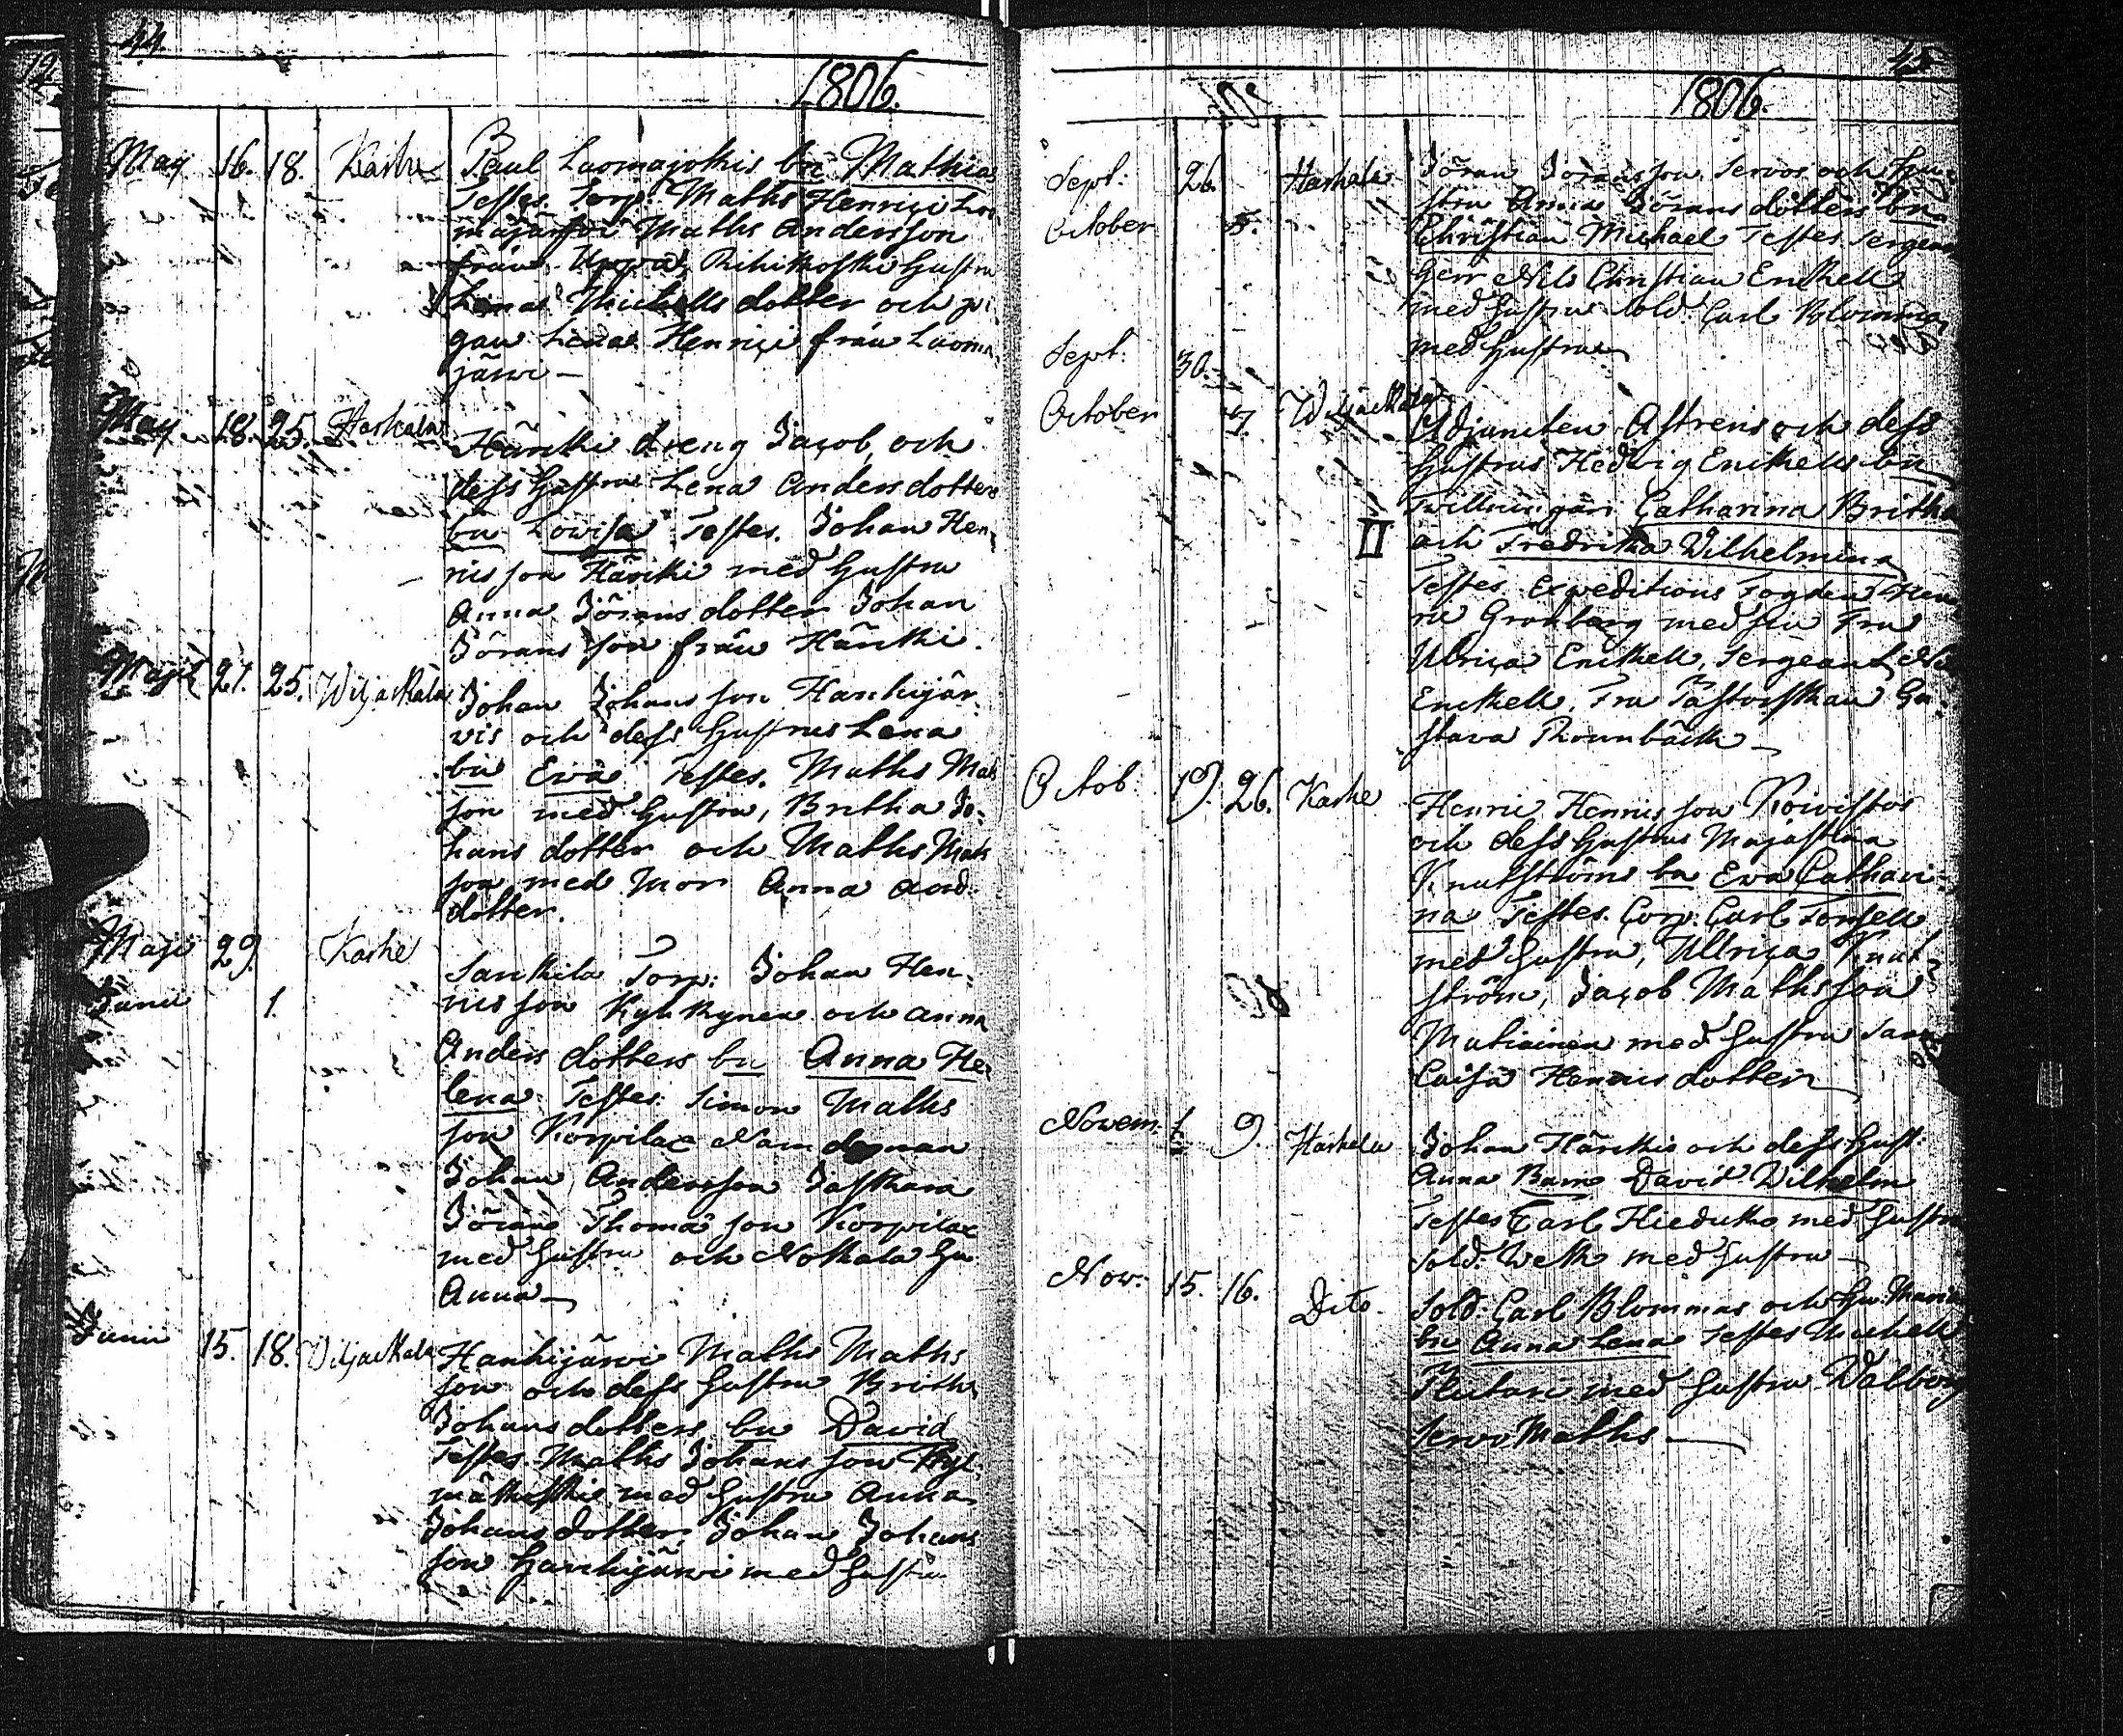 44.
1806.
May 16. 18. Kaske
Paul Luomajokis bn Mathias
Testes. Torp. Maths Henrici
Maths Andersson
från Rihikoski hustru
Lena Michells dotter och pi
gan Lena Henrici från Luoma
järwi —
May 18. 25. Haskala
Härcki dreng Jacob, och
dess hustrus Lena Anders dotters
bn Lowisa Testes. Johan Hen
ricsson Härcki med hustru
Anna Jörans dotter Johan
Jörans son från Härcki.
Maji 21. 25. Wiljackala
Johan Johans son Hanhijär
vis och dess hustrus Lena
bn Ewa Testes. Maths Mats
son med hustru, Britha Jo:
hans dotter och Maths Mats
son med mor Anna And:
dotter.
Maji 29. Kaske
Junii 1.
Sankila Torp: Johan Hen:
rics son Kyhkynen och Anna
Anders dotters bn Anna He
lena Testes Simon Maths
son Korpilax Nämdeman
Johan Andersson Jaskara
Jöran Thomæ son Korpilax
med hustru och Nokala hu
Anna —
Junii 15. 18. Wiljackala
Hanhijärwi Maths Maths
son och dess hustru Britha
Johans dotters bn David
Testes Maths Johans son
med hustru Anna
Johans dotter Johan Johans
son Hanhijärwi med hustru
45
1806.
Sept: 26. Haskala
October 5.
Jöran Jöransson Servos och hu:
stru Annas Jörans dotters bn
Christian Michael Testes Sergean
Herr Nils Christian Enckell
med hustru Sold. Carl Blomma
med hustru
Sept: 30.
October 7. Wiljackala
Adjuncten Astrens och dess
hustrus Hedvig Enckells bn
Twillingar Catharina Britha
II och Fredrika Wilhelmina
Testes Expeditions Fogden Hen
ric Grönberg med sin Fru
Ulrica Enckell, Sergeant
Enckell, Fru Pastorskan Gu:
stava Rounbäck —
Octob: 19. 26. Kaske
Henric Henrics son Koivistos
och dess hustrus Maja Stina
Knutströms bn Ewa Cathari-
na Testes. Corp. Carl Forsell
med hustru, Ulrica Knut
ström, Jacob Mathsson
Matiainen med hustru
Caisa Henrics dotter
Novem. 1 9. Haskala
Johan Härckis och dess hust:
Anna Barn David Wilhelm
Testes Carl Hiedutka med hustru
Sold. Weck med hustru —
Nov: 15. 16. Dito.
Sold. Carl Blommas och hu. Maria
bn Anna Lena Testes Michell
med hustru Walborg
Servo Maths. —